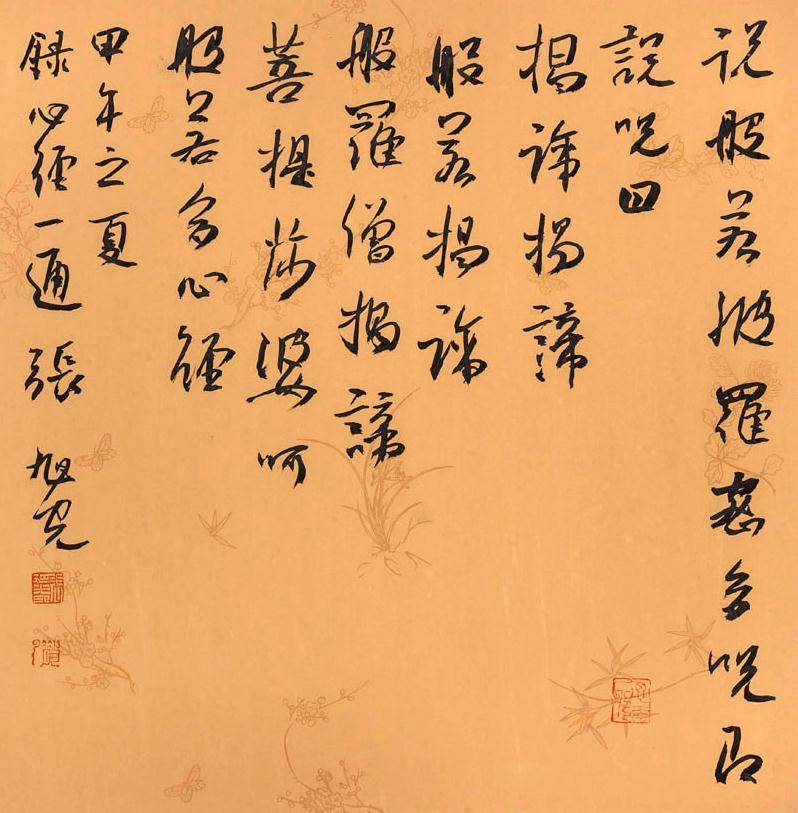 説般若波羅蜜多咒即
説咒曰
揭諦揭諦
般若揭諦
般羅僧揭諦
菩提莎婆呵
般若多心經
甲午之夏
録心經一通 張旭光